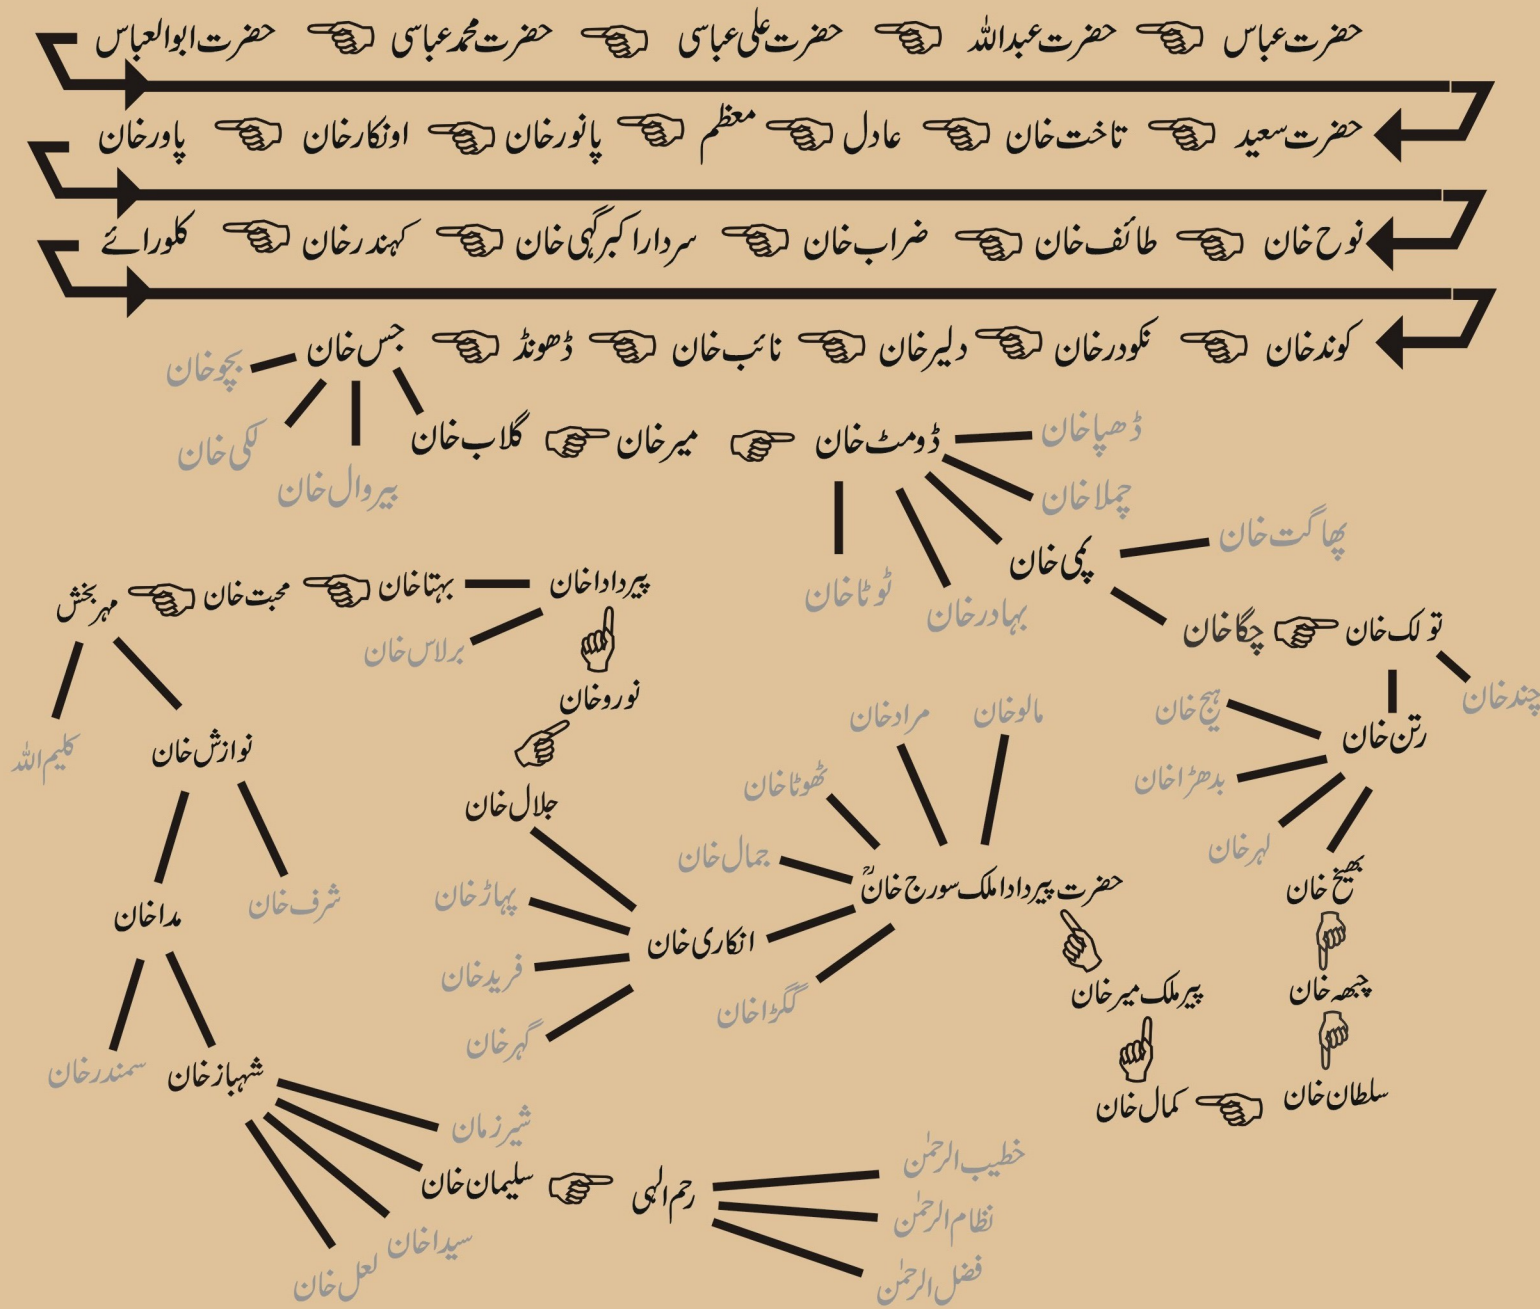 حضرت عباس حضرت عبداللہ حضرت علی عباسی حضرت محمد عباسی حضرت ابوالعباس
حضرت سعید تاخت خان عادل معظم پانور خان اونکار خان پاور خان
نوح خان طائف خان ضراب خان سردار اکبر گہی خان کہندر خان کلورائے
کوند خان نکودر خان دلیر خان نائب خان ڈھونڈ جس خان
بچو خان
لکی خان
بیروال خان
گلاب خان میر خان ڈومٹ خان
ڈھپا خان
چملا خان
پمی خان
بہادر خان
ٹوٹا خان
پھاگت خان
چگا خان تولک خان
چند خان
رتن خان
ہیج خان
بدھڑا خان
لہر خان
بھیخ خان
چبھہ خان
سلطان خان
کمال خان
پیر ملک میر خان
حضرت پیر دادا ملک سورج خانؒ
مالو خان
مراد خان
ٹھوٹا خان
جمال خان
انکاری خان
گگڑا خان
جلال خان
پہاڑ خان
فرید خان
گہر خان
نورو خان
پیر دادا خان
بہتا خان
برلاس خان
محبت خان
مہر بخش
کلیم اللہ
نوازش خان
شرف خان
مدا خان
سمندر خان
شہباز خان
شیر زمان
سلیمان خان
سیدا خان
لعل خان
رحم الہی
خطیب الرحمٰن
نظام الرحمٰن
فضل الرحمٰن